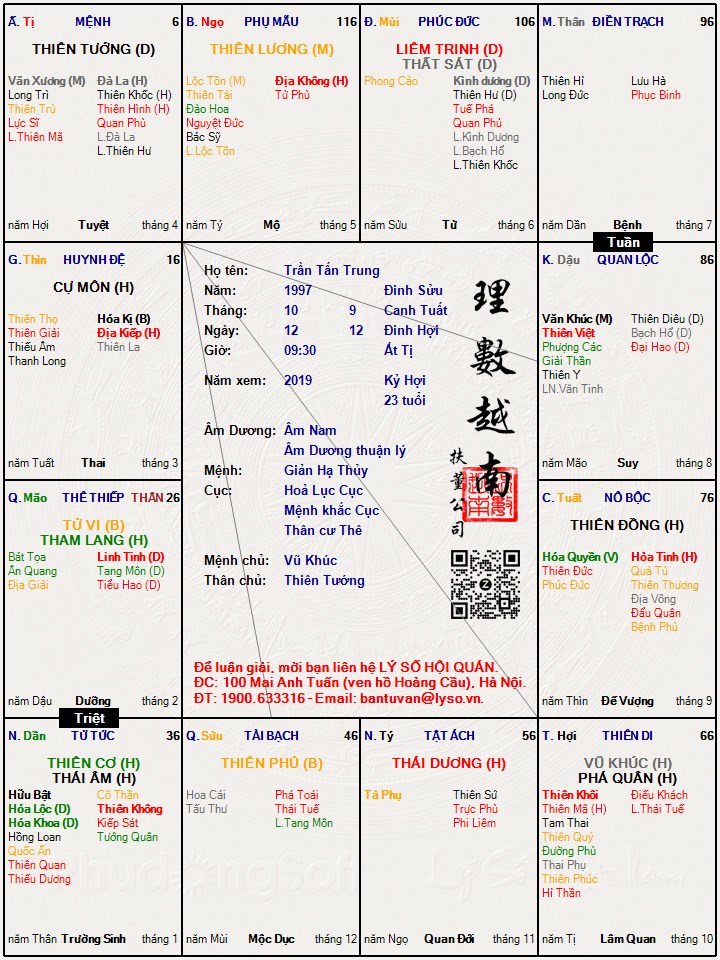 Ấ. Tị MỆNH 6
THIÊN TƯỚNG (D)
Văn Xương (M) Đà La (H)
Long Trì Thiên Khốc (H)
Thiên Trù Thiên Hình (H)
Lực Sĩ Quan Phù
L.Thiên Mã L.Đà La
L.Thiên Hư
năm Hợi Tuyệt tháng 4
B. Ngọ PHỤ MẪU 116
THIÊN LƯƠNG (M)
Lộc Tồn (M) Địa Không (H)
Thiên Tài Tử Phù
Đào Hoa
Nguyệt Đức
Bác Sỹ
L.Lộc Tồn
năm Tý Mộ tháng 5
Đ. Mùi PHÚC ĐỨC 106
LIÊM TRINH (D)
THẤT SÁT (D)
Phong Cáo Kình dương (D)
Thiên Hư (D)
Tuế Phá
Quan Phủ
L.Kình Dương
L.Bạch Hổ
L.Thiên Khốc
năm Sửu Tử tháng 6
M. Thân ĐIỀN TRẠCH 96
Thiên Hỉ Lưu Hà
Long Đức Phục Binh
năm Dần Bệnh tháng 7
Tuần
G. Thìn HUYNH ĐỆ 16
CỰ MÔN (H)
Thiên Thọ Hóa Kị (B)
Thiên Giải Địa Kiếp (H)
Thiếu Âm Thiên La
Thanh Long
năm Tuất Thai tháng 3
Họ tên: Trần Tấn Trung
Năm: 1997 Đinh Sửu
Tháng: 10 9 Canh Tuất
Ngày: 12 12 Đinh Hợi
Giờ: 09:30 Ất Tị
Năm xem: 2019 Kỷ Hợi
23 tuổi
Âm Dương: Âm Nam
Âm Dương thuận lý
Mệnh: Giản Hạ Thủy
Cục: Hoả Lục Cục
Mệnh khắc Cục
Thân cư Thê
Mệnh chủ: Vũ Khúc
Thân chủ: Thiên Tướng
理
數
越
南
扶
董
公
司
Để luận giải, mời bạn liên hệ LÝ SỐ HỘI QUÁN.
ĐC: 100 Mai Anh Tuấn (ven hồ Hoàng Cầu), Hà Nội.
ĐT: 1900.633316 - Email: bantuvan@lyso.vn.
K. Dậu QUAN LỘC 86
Văn Khúc (M) Thiên Diêu (D)
Thiên Việt Bạch Hổ (D)
Phượng Các Đại Hao (D)
Giải Thần
Thiên Y
LN.Văn Tinh
năm Mão Suy tháng 8
Q. Mão THÊ THIẾP THÂN 26
TỬ VI (B)
THAM LANG (H)
Bát Tọa Linh Tinh (D)
Ân Quang Tang Môn (D)
Địa Giải Tiểu Hao (D)
năm Dậu Dưỡng tháng 2
Triệt
C. Tuất NÔ BỘC 76
THIÊN ĐỒNG (H)
Hóa Quyền (V) Hỏa Tinh (H)
Thiên Đức Quả Tú
Phúc Đức Thiên Thương
Địa Võng
Đẩu Quân
Bệnh Phù
năm Thìn Đế Vượng tháng 9
N. Dần TỬ TỨC 36
THIÊN CƠ (H)
THÁI ÂM (H)
Hữu Bật Cô Thần
Hóa Lộc (D) Thiên Không
Hóa Khoa (D) Kiếp Sát
Hồng Loan Tướng Quân
Quốc Ấn
Thiên Quan
Thiếu Dương
năm Thân Trường Sinh tháng 1
Q. Sửu TÀI BẠCH 46
THIÊN PHỦ (B)
Hoa Cái Phá Toái
Tấu Thư Thái Tuế
L.Tang Môn
năm Mùi Mộc Dục tháng 12
N. Tý TẬT ÁCH 56
THÁI DƯƠNG (H)
Tả Phụ Thiên Sứ
Trực Phù
Phi Liêm
năm Ngọ Quan Đới tháng 11
T. Hợi THIÊN DI 66
VŨ KHÚC (H)
PHÁ QUÂN (H)
Thiên Khôi Điếu Khách
Thiên Mã (H) L.Thái Tuế
Tam Thai
Thiên Quý
Đường Phù
Thai Phụ
Thiên Phúc
Hỉ Thần
năm Tị Lâm Quan tháng 10